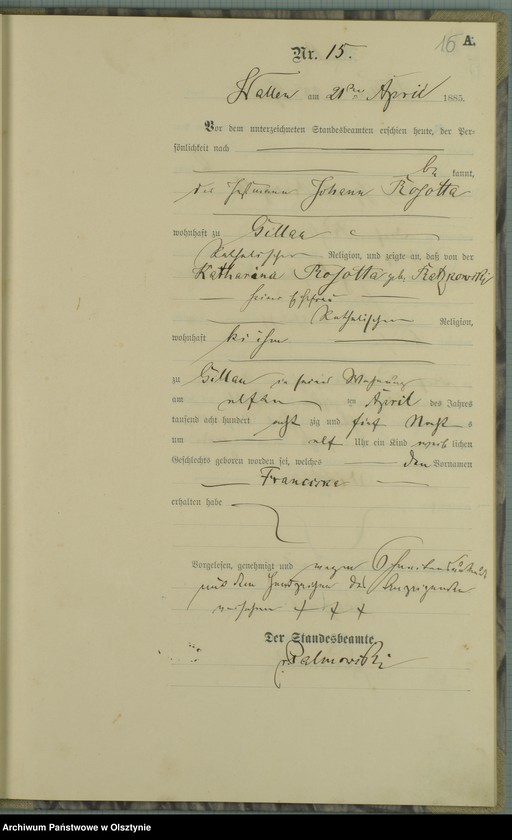 16 A.
Nr. 15.
Wallen am 21ten April 1885.
Vor dem unterzeichneten Standesbeamten erschien heute, der Per-
sönlichkeit nach
be kannt,
der Johann Rogotta
wohnhaft zu Gillau
Katholischer Religion, und zeigte an, daß von der
Katharina Rogotta geb.
seiner Ehefrau
Katholischer Religion,
wohnhaft bei ihm
zu Gillau in seiner Wohnung
am elften April des Jahres
tausend acht hundert acht zig und fünf Nachts
um elf Uhr ein Kind weib lichen
Geschlechts geboren worden sei, welches den Vornamen
erhalten habe
Vorgelesen, genehmigt und wegen
mit dem Handzeichen des Anzeigenden
versehen + + +
Der Standesbeamte.
Palmowski
Archiwum Państwowe w Olsztynie